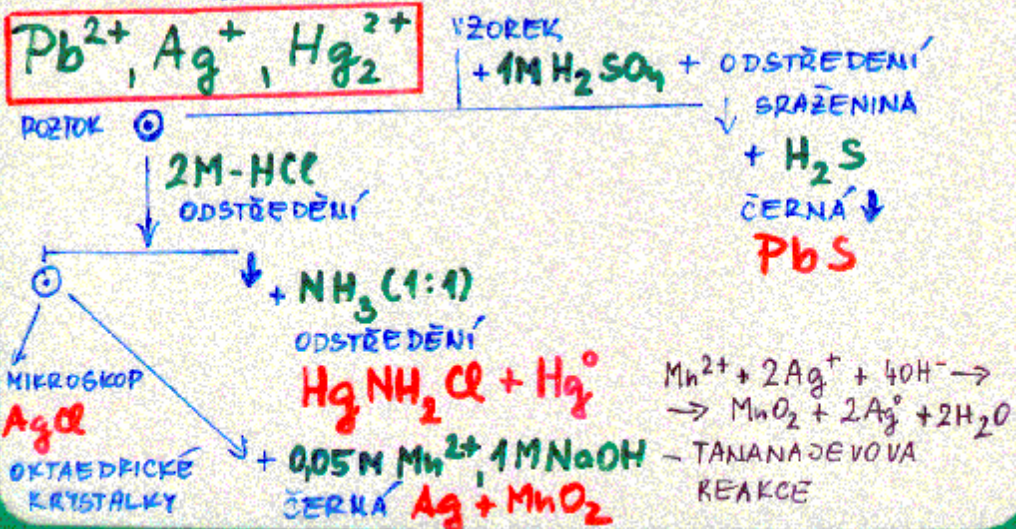 Pb²⁺, Ag⁺, Hg₂²⁺
VZOREK
+ 1M H₂SO₄ + ODSTŘEDENÍ
SRAŽENINA
+ H₂S
ČERNÁ ↓
PbS
ROZTOK
2M-HCl
ODSTŘEDĚNÍ
↓ + NH₃ (1:1)
ODSTŘEDĚNÍ
HgNH₂Cl + Hg°
MIKROSKOP
AgCl
OKTAEDRICKÉ
KRYSTALKY
+ 0,05M Mn²⁺, 1M NaOH
ČERNÁ Ag + MnO₂
Mn²⁺ + 2Ag⁺ + 4OH⁻ →
→ MnO₂ + 2Ag° + 2H₂O
- TANANAJEVOVA
REAKCE